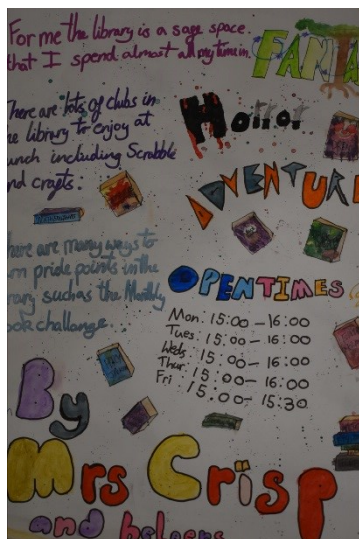 For me the library is a sage space.
that I spend almost all my time in.
FANTA
There are lots of clubs in
library to enjoy at
unch including Scrabble
nd crafts.
Horror
ADVENTUR
here are many ways to
rn pride points in the
rary such as the Monthly
ook challange
OPENTIMES
Mon: 15:00 - 16:00
Tues: 15:00 - 16:00
Weds: 15:00 - 16:00
Thur: 15:00 - 16:00
Fri: 15:00 - 15:30
By
Mrs Crisp
and helpers